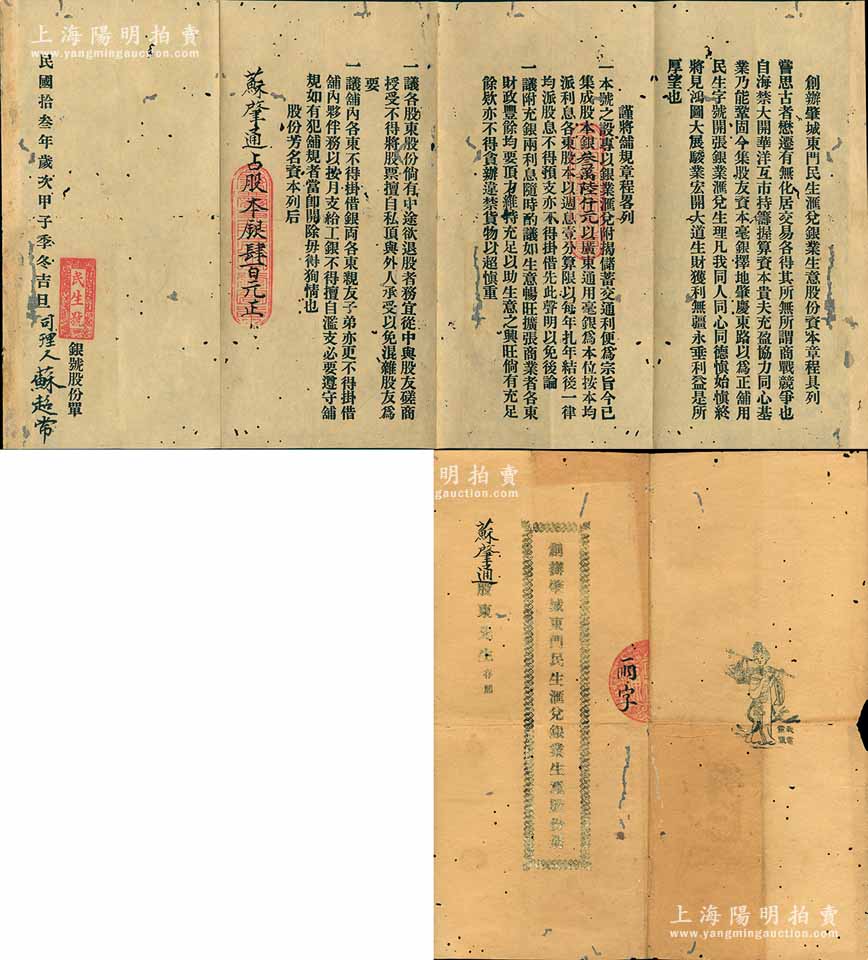 上海陽明拍賣
www.yangmingauction.com
上海陽明拍賣
www.yangmingauction.com
創辦肇城東門民生滙兌銀業生意股份資本章程具列
嘗思古者懋遷有無化居交易各得其所無所謂商戰競爭也
自海禁大開華洋互市持籌握算資本貴夫充盈協力同心基
業乃能鞏固今集股友資本毫銀擇地肇慶東路以爲正舖用
民生字號開張銀業滙兌生理凡我同人同心同德愼始愼終
將見鴻圖大展駿業宏開大道生財獲利無疆永垂利益是所
厚望也
謹將舖規章程畧列
一本號之設專以銀業滙兌附揭儲蓄交通利便爲宗旨今已
集成股本銀叁萬陸仟元以廣東通用毫銀爲本位按本均
派利息各東股本以週息壹分算限以每年扎年結後一律
均派股息不得預支亦不得掛借先此聲明以免後論
一議附充銀兩利息隨時酌議如生意暢旺擴張商業者各東
財政豐餘均要頂力維持充足以助生意之興旺倘有充足
餘欵亦不得貪辦違禁貨物以超愼重
一議各股東股份倘有中途欲退股者務宜從中與股友磋商
授受不得將股票擅自私頂與外人承受以免混雜股友爲
要
一議舖內各東不得掛借銀両各東親友子弟亦更不得掛借
舖內夥伴務以按月支給工銀不得擅自濫支必要遵守舖
規如有犯舖規者當卽開除毋得狥情也
股份芳名資本列后
蘇肇通占股本銀肆百元正
民生號
銀號股份單
民國拾叁年歲次甲子季冬吉旦司理人蘇超常
明拍賣
gauction.com
創辦肇城東門民生滙兌銀業生意股份部
蘇肇通股東先生存照
丽字
上海陽明拍賣
www.yangmingauction.com